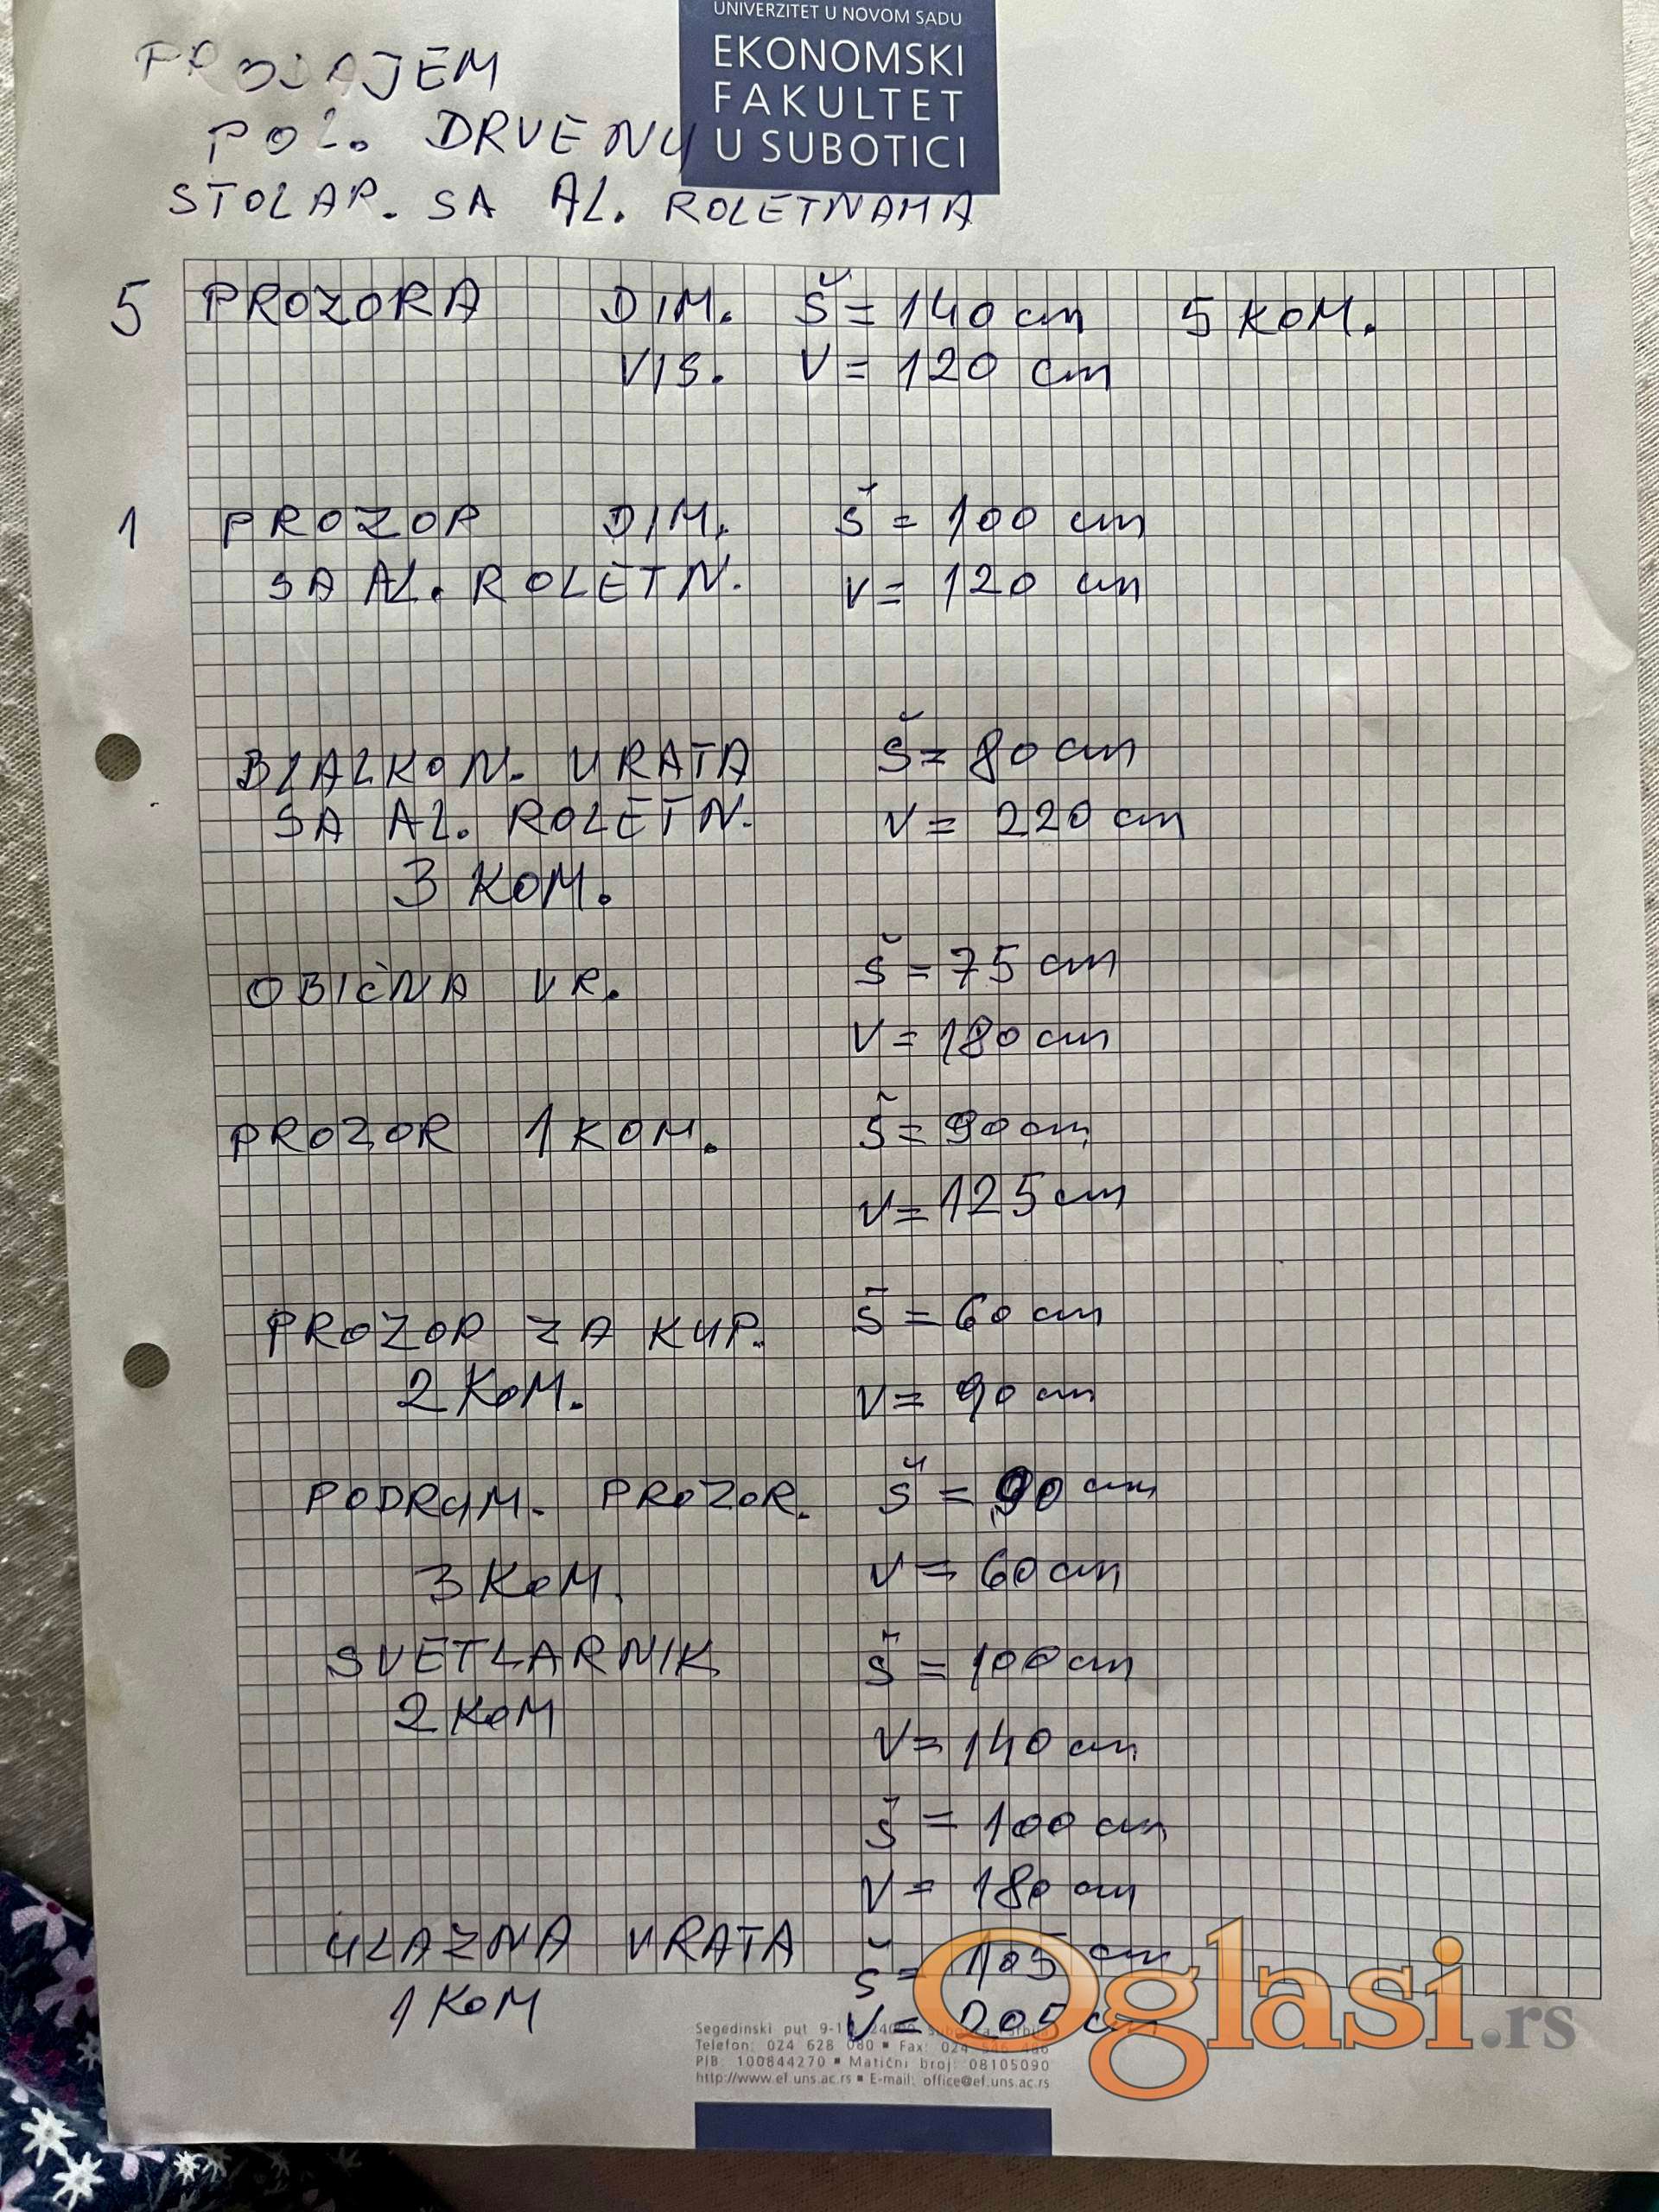 UNIVERZITET U NOVOM SADU
EKONOMSKI
FAKULTET
U SUBOTICI
PRODAJEM
POL. DRVENU
STOLAR. SA AL. ROLETNAMA
5 PROZORA DIM. Š = 140 cm 5 KOM.
VIS. V = 120 cm
1 PROZOR DIM. Š = 100 cm
SA AL. ROLETN. V = 120 cm
BLALKON. VRATA Š = 80 cm
SA AL. ROLETN. V = 220 cm
3 KOM.
OBIČNA VR. Š = 75 cm
V = 180 cm
PROZOR 1 KOM. Š = 90 cm
V = 125 cm
PROZOR ZA KUP. Š = 60 cm
2 KOM. V = 90 cm
PODRUM. PROZOR. Š = 90 cm
3 KOM. V = 60 cm
SVETLARNIK Š = 100 cm
2 KOM
V = 140 cm
Š = 100 cm
V = 180 cm
ULAZNA VRATA Š = 105 cm
1 KOM V = 205 cm
Oglasi.rs
Segedinski put
Telefon: 024 628 080 ▪ Fax: 024
PIB: 100844270 ▪ Matični broj: 08105090
http://www.ef.uns.ac.rs ▪ E-mail: office@ef.uns.ac.rs